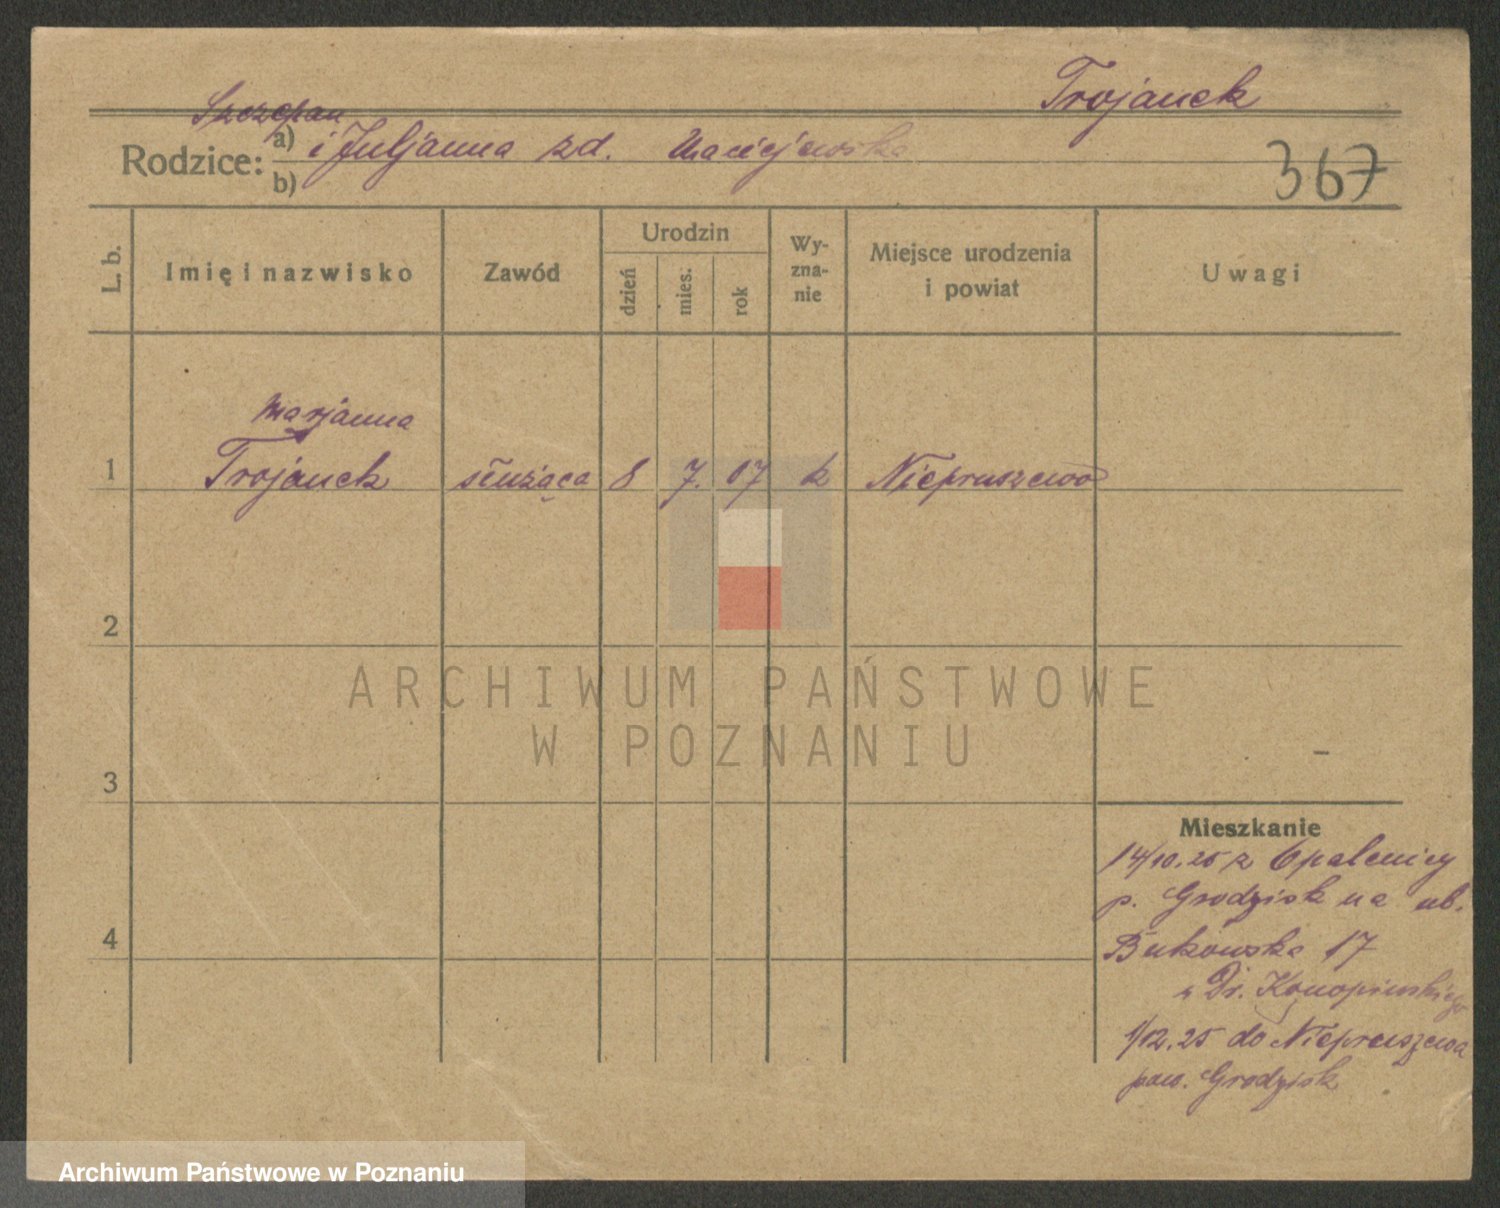 Trojanek
Szczepan
Rodzice: a) i Juljanna zd. Maciejewska
b)
367
L. b.
Imię i nazwisko
Zawód
Urodzin
dzień
mies.
rok
Wy-
zna-
nie
Miejsce urodzenia
i powiat
Uwagi
Marjanna
1 Trojanek służąca 8 7. 07 k Niepruszewo
2
ARCHIWUM PAŃSTWOWE
W POZNANIU
3
Mieszkanie
14/10.25 z Opalenicy
p. Grodzisk na ul.
4
Bukowska 17
u Dr. Konopińskiego
1/12.25 do Niepruszewa
pow. Grodzisk
Archiwum Państwowe w Poznaniu